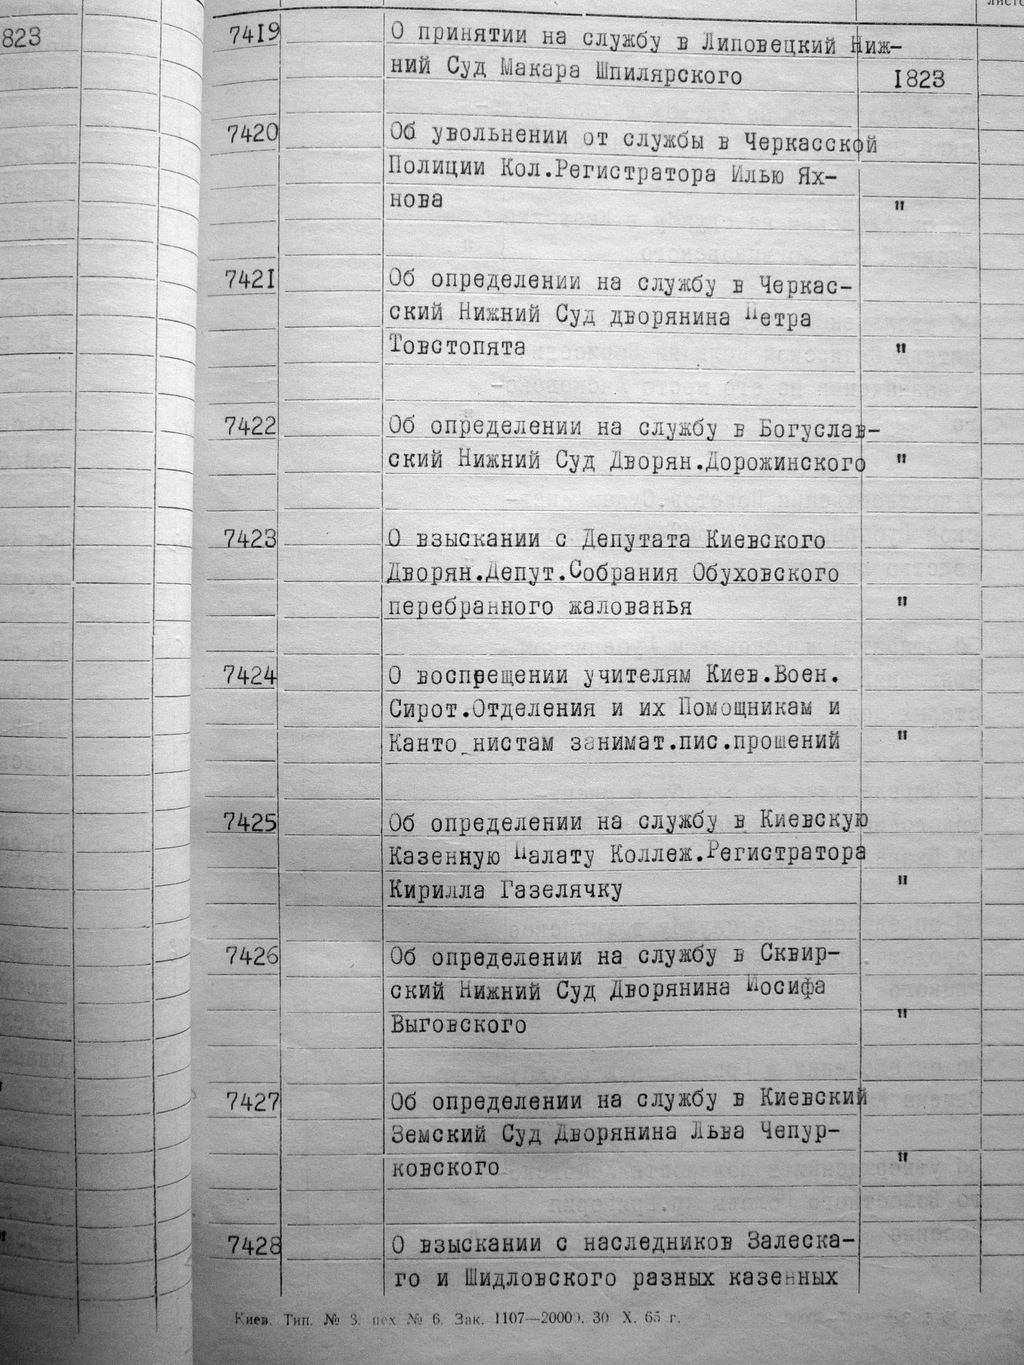 823
листо
7419 О принятии на службу в Липовецкий Ниж-
ний Суд Макара Шпилярского 1823
7420 Об увольнении от службы в Черкасской
Полиции Кол.Регистратора Илью Ях-
нова "
7421 Об определении на службу в Черкас-
ский Нижний Суд дворянина Петра
Товстопята "
7422 Об определении на службу в Богуслав-
ский Нижний Суд Дворян.Дорожинского "
7423 О взыскании с Депутата Киевского
Дворян.Депут.Собрания Обуховского
перебранного жалованья "
7424 О воспрещении учителям Киев.Воен.
Сирот.Отделения и их Помощникам и
Канто_нистам занимат.пис.прошений "
7425 Об определении на службу в Киевскую
Казенную Палату Коллеж.Регистратора
Кирилла Газелячку "
7426 Об определении на службу в Сквир-
ский Нижний Суд Дворянина Иосифа
Выговского "
7427 Об определении на службу в Киевский
Земский Суд Дворянина Льва Чепур-
ковского "
7428 О взыскании с наследников Залеска-
го и Шидловского разных казенных
Киев. Тип. № 3. цех № 6. Зак. 1107—20000. 30 X. 65 г.